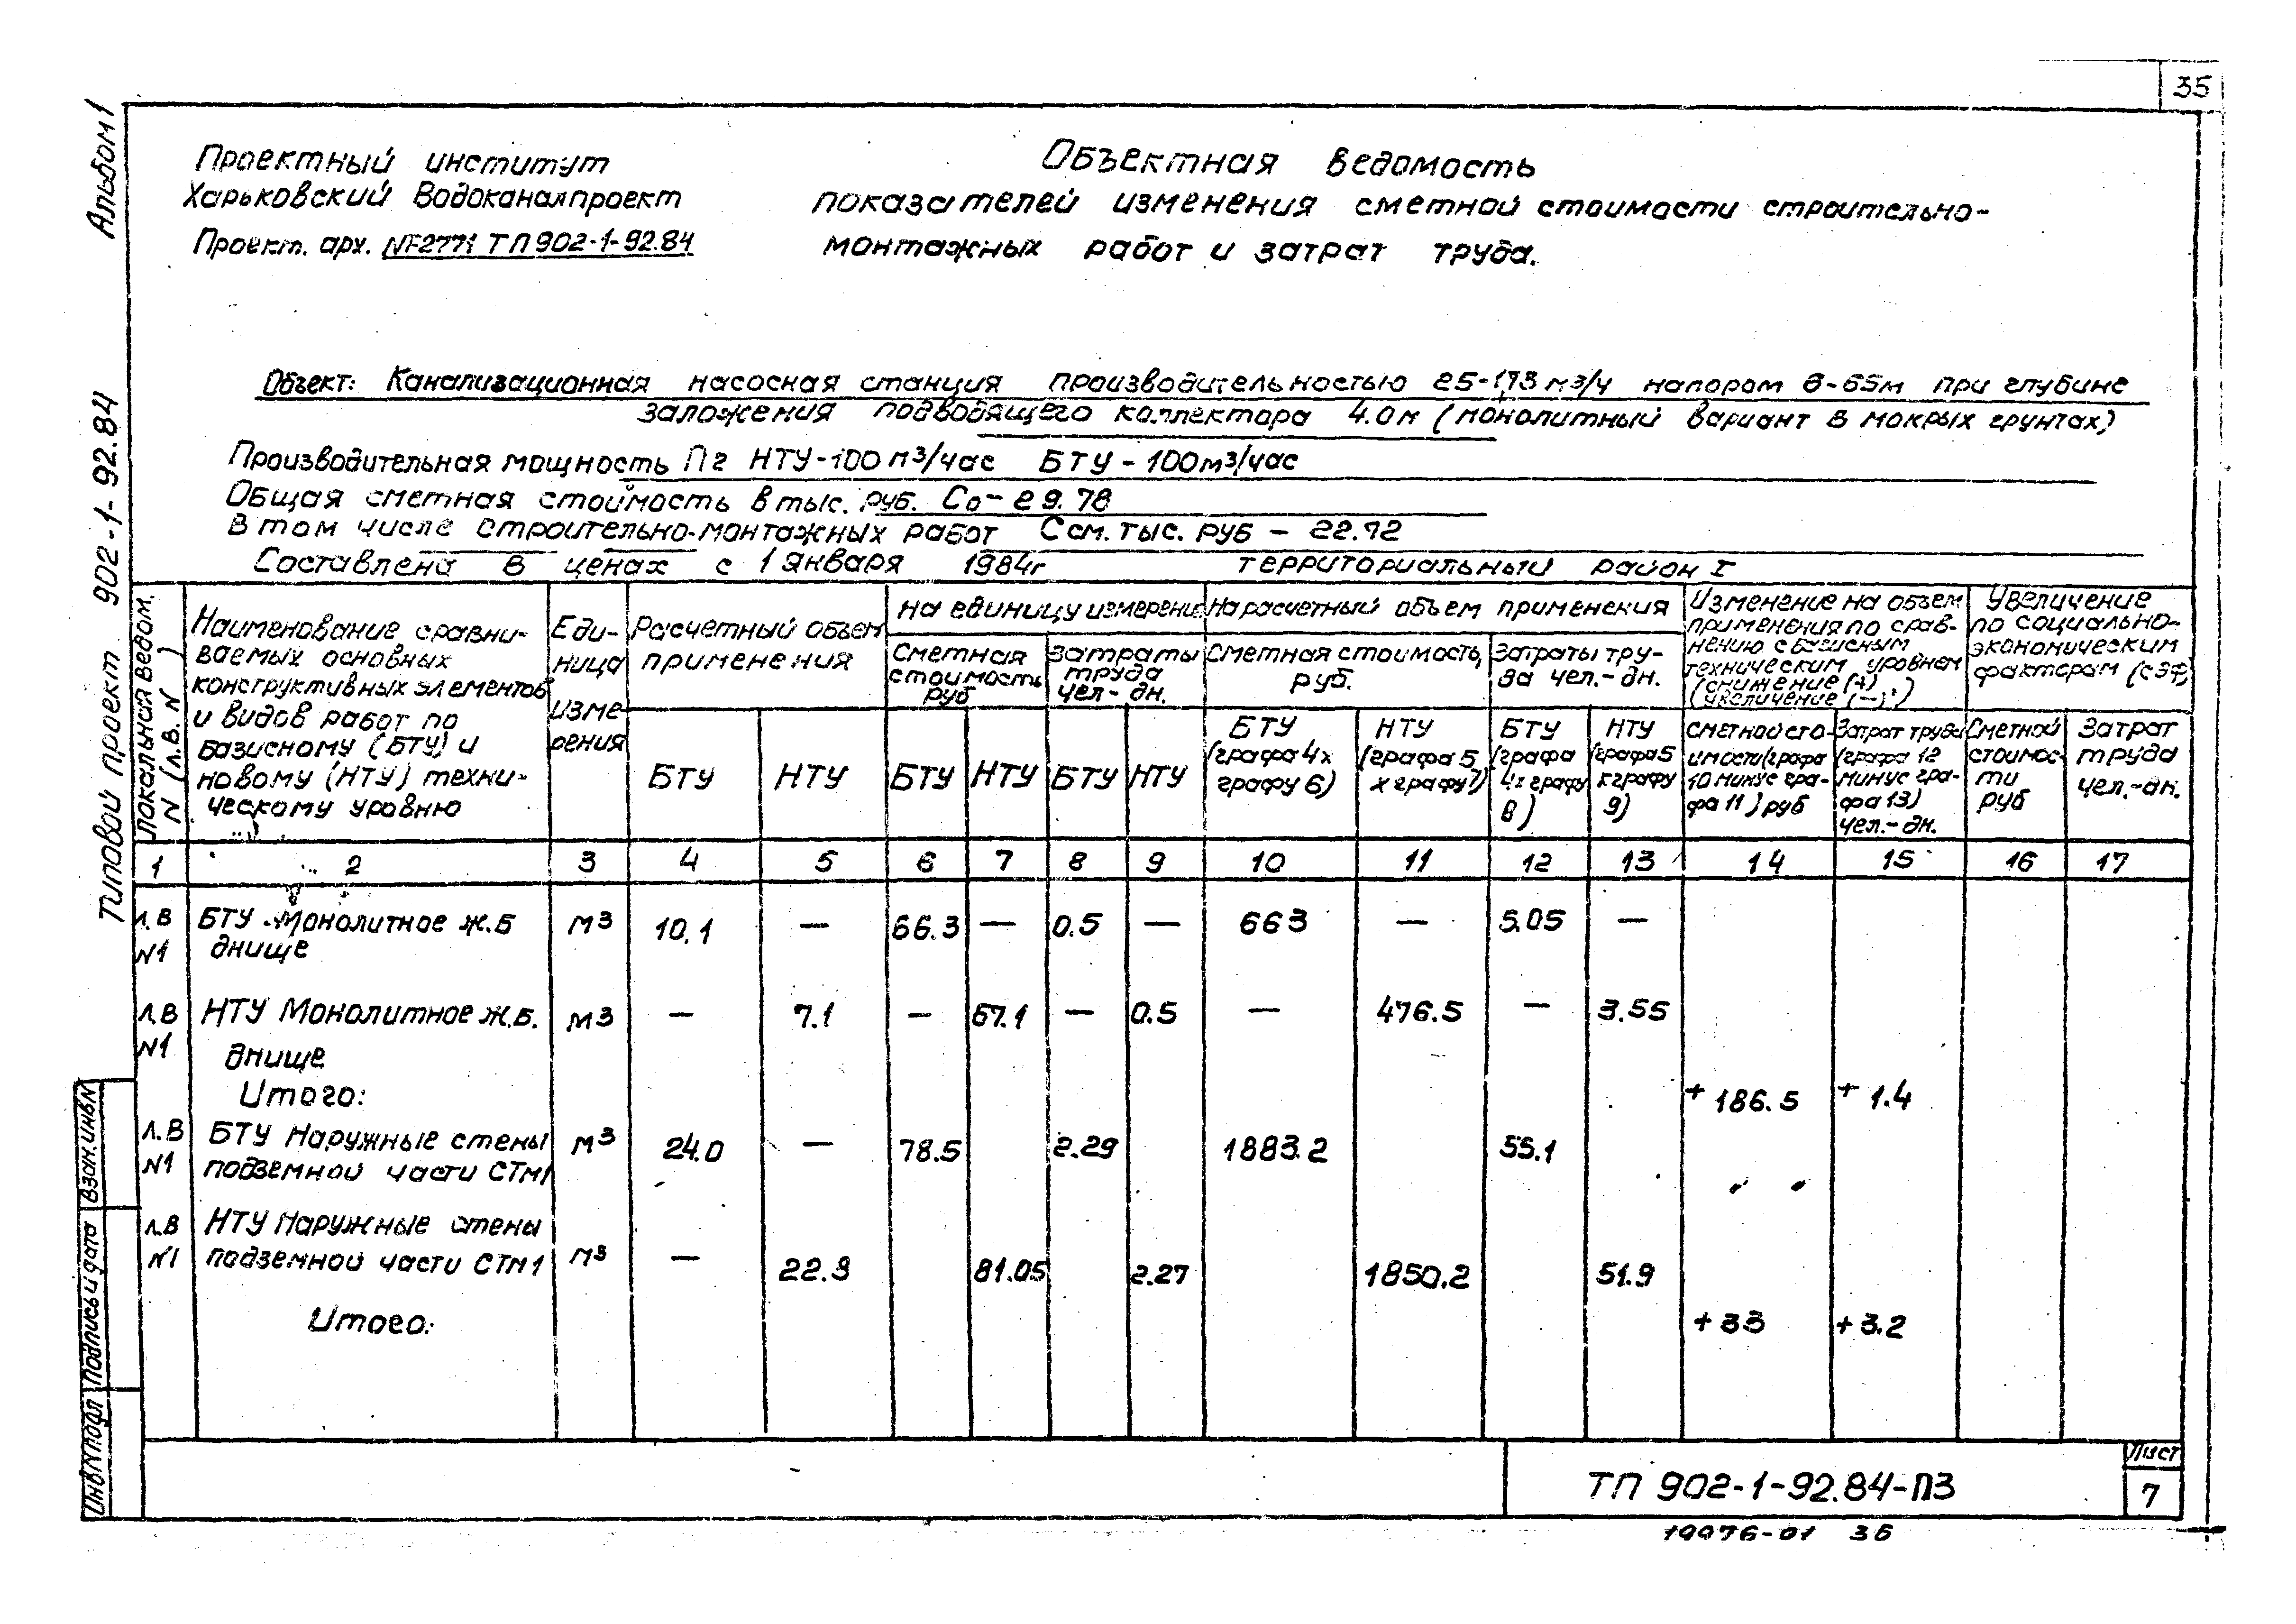 35
Альбом 1
Типовой проект 902-1-92.84
Проектный институт
Харьковский Водоканалпроект
Проект. арх. ТП 902-1-92.84
Объектная ведомость
показателей изменения сметной стоимости строительно-
монтажных работ и затрат труда.
Объект: Канализационная насосная станция производительностью 25-173 м3/ч напором 8-65м при глубине
заложения подводящего коллектора 4.0м (монолитный вариант в мокрых грунтах)
Производительная мощность Пг НТУ-100 м3/час БТУ-100м3/час
Общая сметная стоимость в тыс. руб. Со-29.78
В том числе строительно-монтажных работ Ссм. тыс. руб -
Составлена в ценах с 1 января 1984г территориальный район I
Локальная ведом. N (л.в. N )
Наименование сравни-
ваемых основных
конструктивных элементов
и видов работ по
базисному (БТУ) и
новому (НТУ) техни-
ческому уровню
Еди-
ница
изме-
рения
Расчетный объем
применения
БТУ НТУ
На единицу измерения
Сметная
стоимость
руб
Затраты
труда
чел-дн.
БТУ НТУ БТУ НТУ
На расчетный объем применения
Сметная стоимость,
руб.
Затраты тру-
да чел.-дн.
БТУ
(графа 4х
графу 6)
НТУ
(графа 5
х графу 7)
БТУ
(графа
4х графу
8)
НТУ
(графа 5
х графу
9)
Изменение на объем
применения по срав-
нению с базисным
техническим уровнем
(снижение (+)
увеличение (-).)
Сметной сто-
имости (графа
10 минус гра-
фа 11) руб
Затрат труда
(графа 12
минус гра-
фа 13)
чел.-дн.
Увеличение
по социально-
экономическим
факторам (СЭФ)
Сметной
стоимос-
ти
руб
Затрат
труда
чел.-дн.
1 2 3 4 5 6 7 8 9 10 11 12 13 14 15 16 17
Л.В N1 БТУ Монолитное ж.б м3 10.1 — 66.3 — 0.5 — 663 — 5.05 —
днище
Л.В N1 НТУ Монолитное ж.б. м3 — 7.1 — 67.1 — 0.5 — 476.5 — 3.55
днище
Итого: + 186.5 + 1.4
Л.В N1 БТУ Наружные стены м3 24.0 — 78.5 2.29 1883.2 55.1
подземной части СТм1
Л.В НТУ Наружные стены
N1 подземной части СТм1 м3 — 22.9 81.05 2.27 1850.2 51.9
Итого: +33 +3.2
Взам.инвN
Подпись и дата
ИнвNподл
ТП 902-1-92.84-ПЗ
Лист
7
19976-01 36